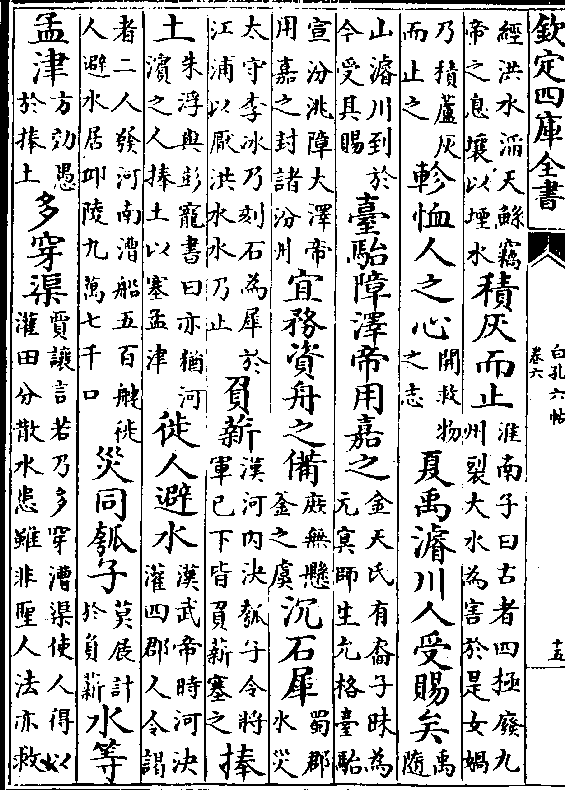 欽定四庫全書
白孔六帖
卷六
十五
經洪水滔天鯀竊帝之息壤以堙水
積灰而止
淮南子曰古者四極廢九州裂大水為害於是女媧
乃積蘆灰而止之
軫恤人之心
開救物之志
夏禹濬川人受賜矣
禹隨山濬川到於今受其賜
臺駘障澤帝用嘉之
金天氏有裔子昧為元冥師生允格臺駘
宣汾洮障大澤帝用嘉之封諸汾川
宜務資舟之備
庶無懸釜之虞
沉石犀
蜀郡水災
太守李冰乃刻石為犀於江浦以厭洪水水乃止
負薪
漢河内決瓠子令將軍已下皆負薪塞之
捧土
朱浮與彭寵書曰亦猶河濱之人捧土以塞孟津
徙人避水
漢武帝時河決灌四郡人令謁
者二人發河南漕船五百艘徙人避水居邱陵九萬七千口
災同瓠子
莫展計於負薪
水等
孟津
方効愚於捧土
多穿渠
賈讓言若乃多穿漕渠使人得以灌田分散水患雖非聖人法亦救